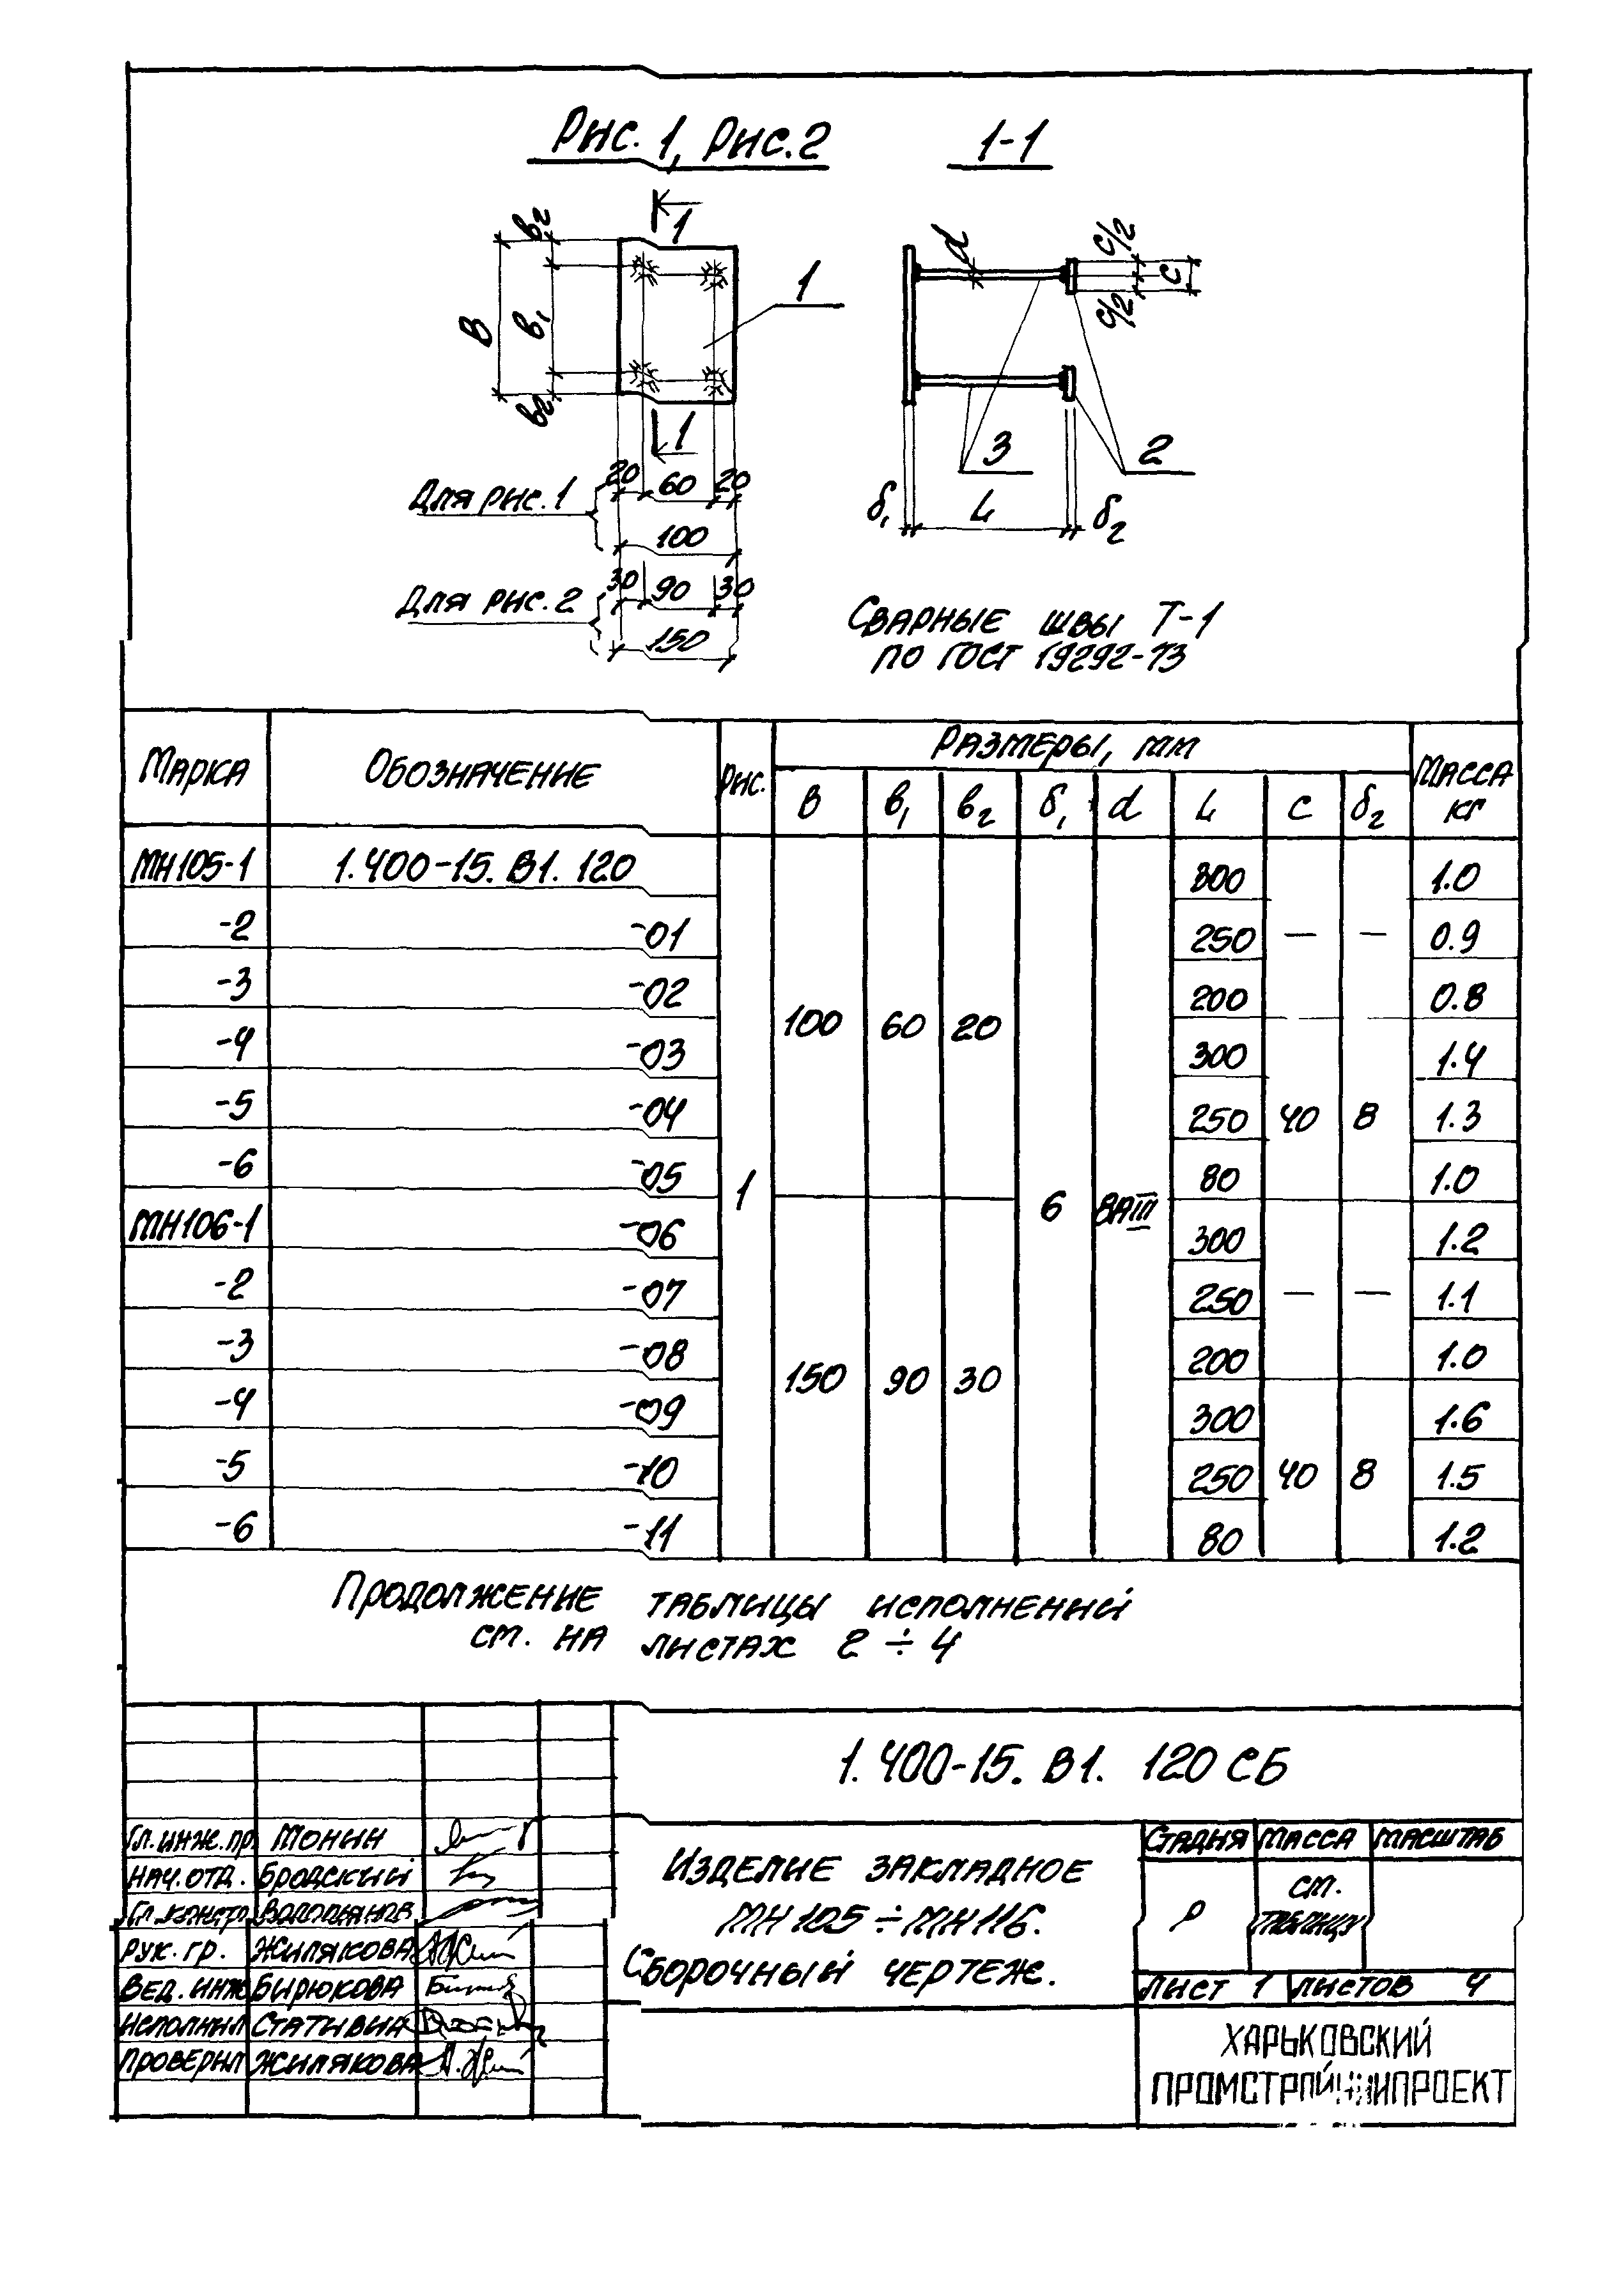 Рис. 1, Рис. 2 1-1
1
в2
В
в1
в2
1
1
20 60 20
Для рис. 1
100
30 90 30
Для рис. 2
150
d
с/2
с
с/2
3 2
δ1 L δ2
Сварные швы Т-1
по ГОСТ 19292-73
Марка Обозначение Рис. Размеры, мм Масса кг
В в1 в2 δ1 d L с δ2
МН105-1 1.400-15. В1. 120 300 1.0
-2 -01 250 — — 0.9
-3 -02 100 60 20 200 0.8
-4 -03 300 1.4
-5 -04 250 40 8 1.3
-6 -05 1 6 8АIII 80 1.0
МН106-1 -06 300 1.2
-2 -07 250 — — 1.1
-3 -08 150 90 30 200 1.0
-4 -09 300 1.6
-5 -10 250 40 8 1.5
-6 -11 80 1.2
Продолжение таблицы исполнений
см. на листах 2 ÷ 4
1.400-15. В1. 120 СБ
Гл. инж. пр. Монин
Нач. отд. Бродский
Гл. констр.
Рук. гр. Жилякова
Вед. инж Бирюкова
Исполнил Стативка
Проверил Жилякова
Изделие закладное
МН 105 ÷ МН 116.
Сборочный чертеж.
Стадия Масса Масштаб
Р см. таблицу
Лист 1 Листов 4
ХАРЬКОВСКИЙ
ПРОМСТРОЙНИИПРОЕКТ